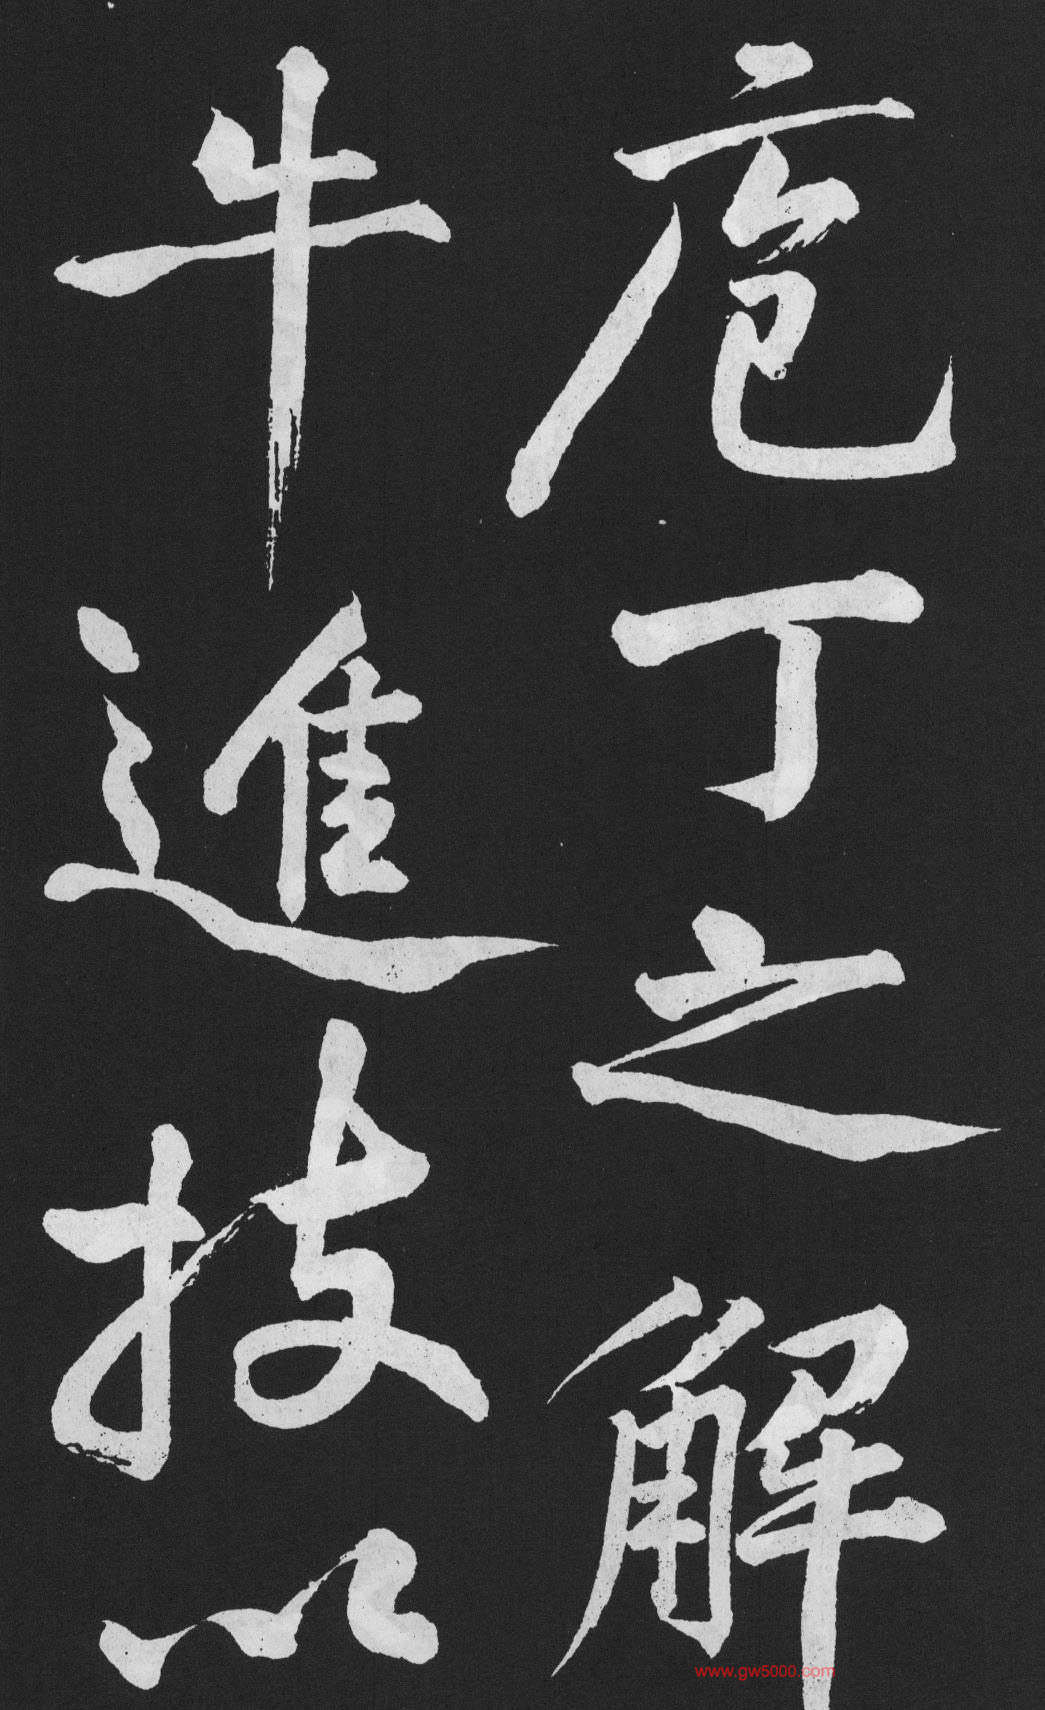 庖丁之解
牛進技以
www.gw5000.com